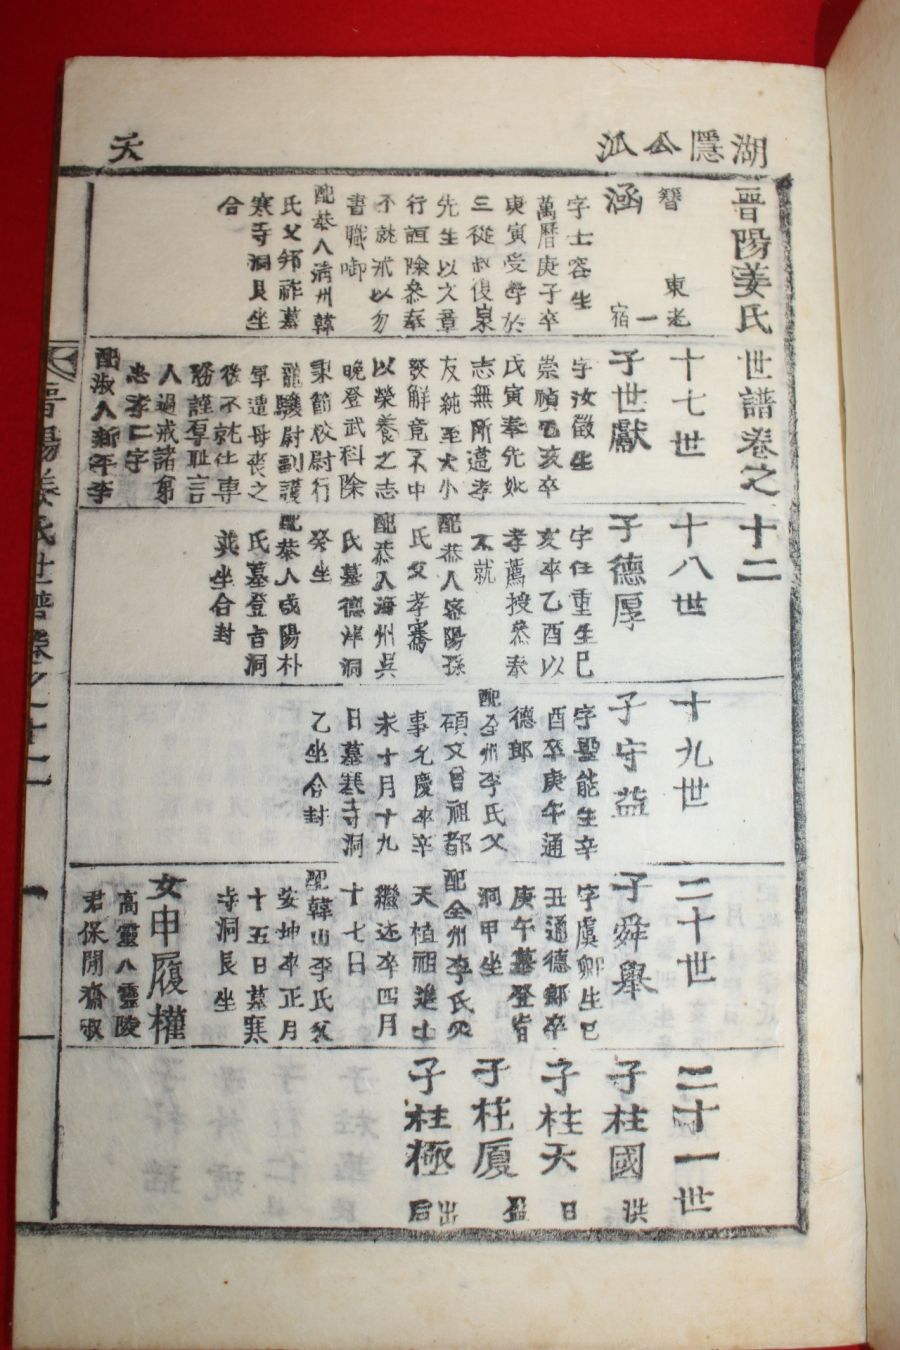 湖隱公派
天
晉陽姜氏世譜卷之十二
東老
一宿
涵
字士容生
萬曆庚子卒
庚寅受學於
三從叔復泉
先生以文章
行誼除參奉
不就戒以勿
書職啣
配恭人淸州韓
氏父
寒寺洞艮坐
合
十七世
子世獻
字汝徵生
崇禎乙亥卒
氏寅奉先妣
志無所違孝
友純至大小
發解竟不中
以榮養之志
晚登武科除
秉節校尉行
龍驤尉副護
軍遭母喪之
後不就仕專
務謹厚恥言
人過戒諸弟
忠孝二字
配淑人新平李
十八世
子德厚
字任重生巳
亥卒乙酉以
孝薦授參奉
不就
配恭人密陽孫
氏父孝騫
配恭人海州吳
氏墓德岸洞
癸坐
配恭人咸陽朴
氏墓登旨洞
巽坐合封
十九世
子守益
字聖能生辛
酉卒庚午通
德郎
配全州李氏父
碩文曾祖都
事允慶卒辛
未十月十九
日墓寒寺洞
乙坐合封
二十世
子舜擧
字虞卿生巳
丑通德郎卒
庚午墓登旨
洞甲坐
配全州李氏父
天植祖進士
繼述卒四月
十七日
配韓山李氏父
安坤卒正月
十五日墓寒
寺洞艮坐
女申履權
高靈人靈陵
君保閒齋叔
二十一世
子柱國
洪
子柱天
日
子柱厦
盈
子柱極
出后
晉陽姜氏世譜卷之十二
一